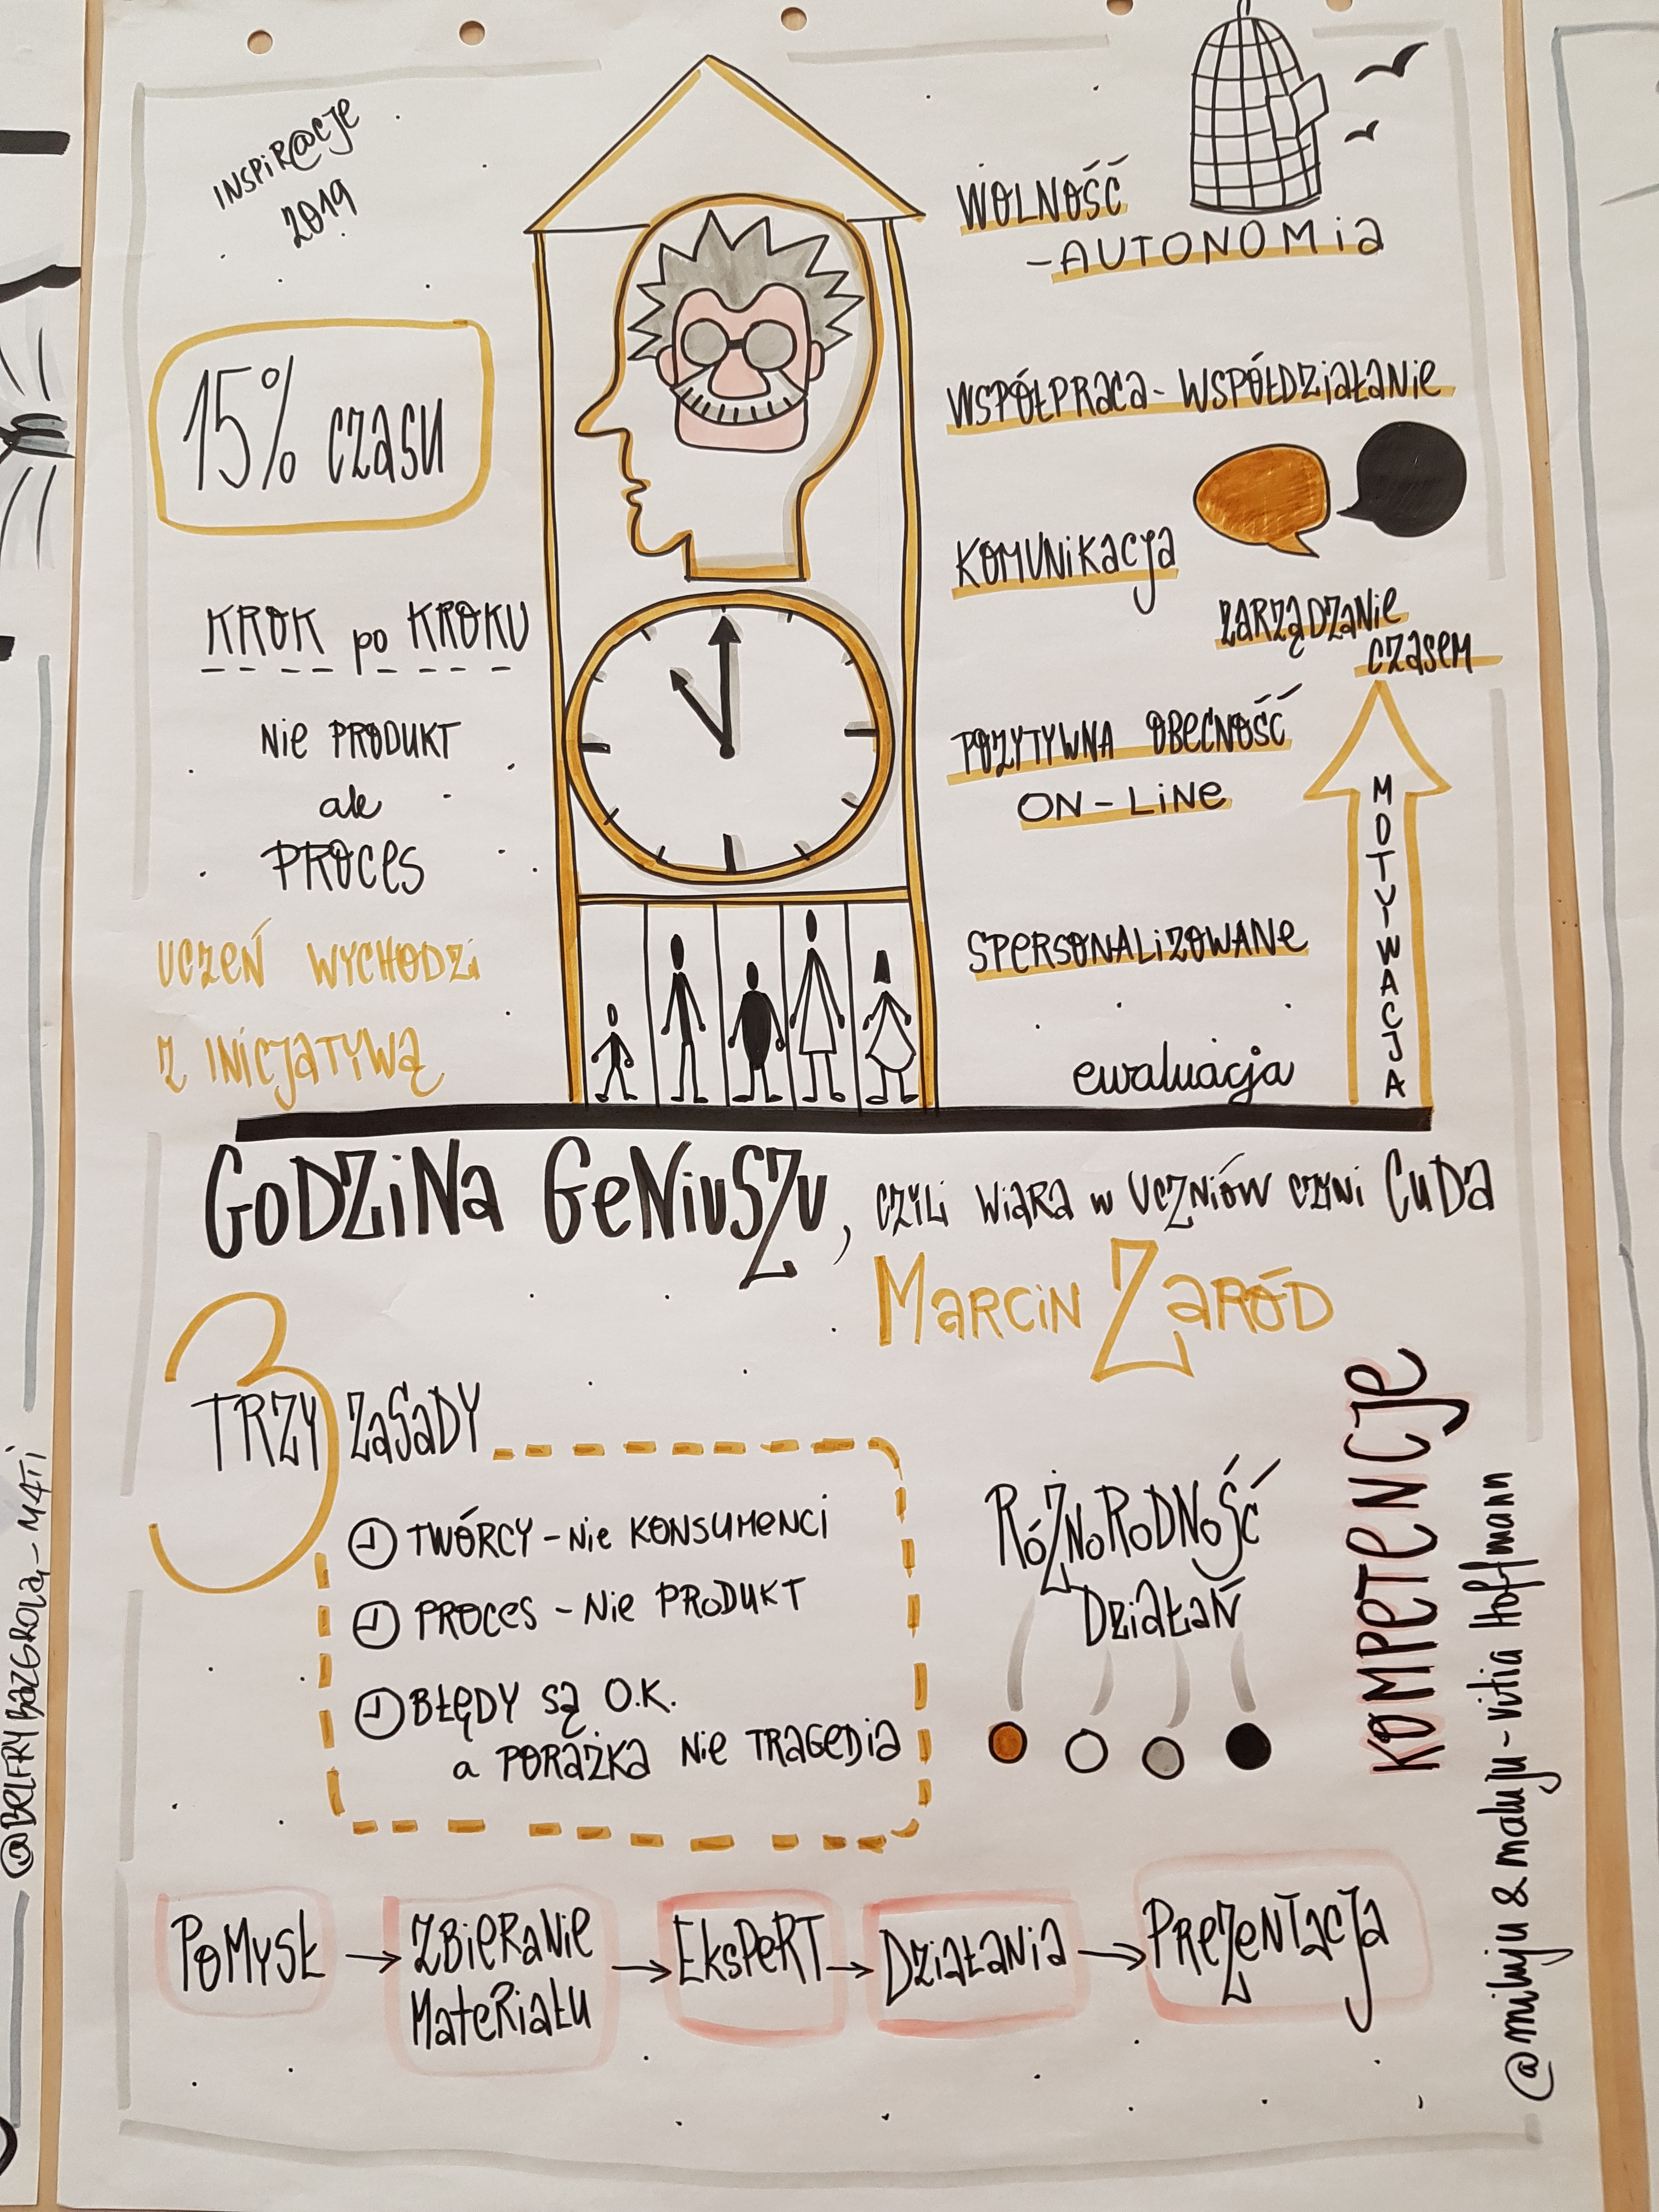 INSPIR@CJE
2019
15% czasu
KROK po KROKU
Nie PRODUKT
ale
PROCES
UCZEŃ WYCHODZI
Z INICJATYWĄ
WOLNOŚĆ
-AUTONOMia
WSPÓŁPRACA - WSPÓŁDZiałaNie
KOMUNiKacja
ZARZĄDZaNie
CZaSeM
POZYTYWNA OBECNOŚĆ
ON-LiNe
MOTYWACJA
SPERSONALiZOWANe
ewaluacja
GODZiNa GeNiuSZu, CZYLi WiaRa w UCZNiÓW CZYNi CuDa
MaRCiN ZaRÓD
3
TRZY ZaSaDY
TWÓRCY - Nie KONSUMENCI
PROCES - Nie PRODUKT
BŁĘDY SĄ O.K.
a PORAŻKA Nie TRAGEDia
RÓŻNORODNOŚĆ
DZiałaŃ
KOMPETENCJe
POMYSŁ → ZBieRaNie MateRiału → EksPeRT → DZiałaNia → PReZeNTacJa
@miluju & maluju - vitia Hoffmann
@BELFRY BAZGROLĄ - M4Ti